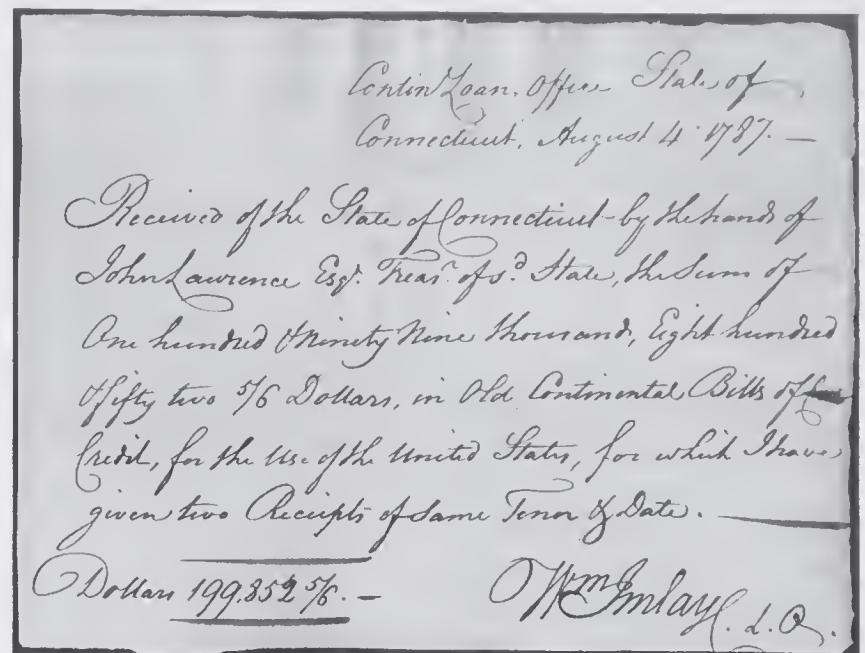 Contin.l Loan. Office State of
Connecticut, August 4. 1787. —
Received of the State of Connecticut - by the hands of
John Lawrence Esqr. Treasr. of sd. State, the Sum of
One hundred & Ninety Nine thousand, Eight hundred
& fifty two 5/6 Dollars, in Old Continental Bills of
Credit, for the Use of the United States, for which I have
given two Receipts of Same Tenor & Date. —
Dollars 199,852 5/6. —
Wm Imlay C. L. O.